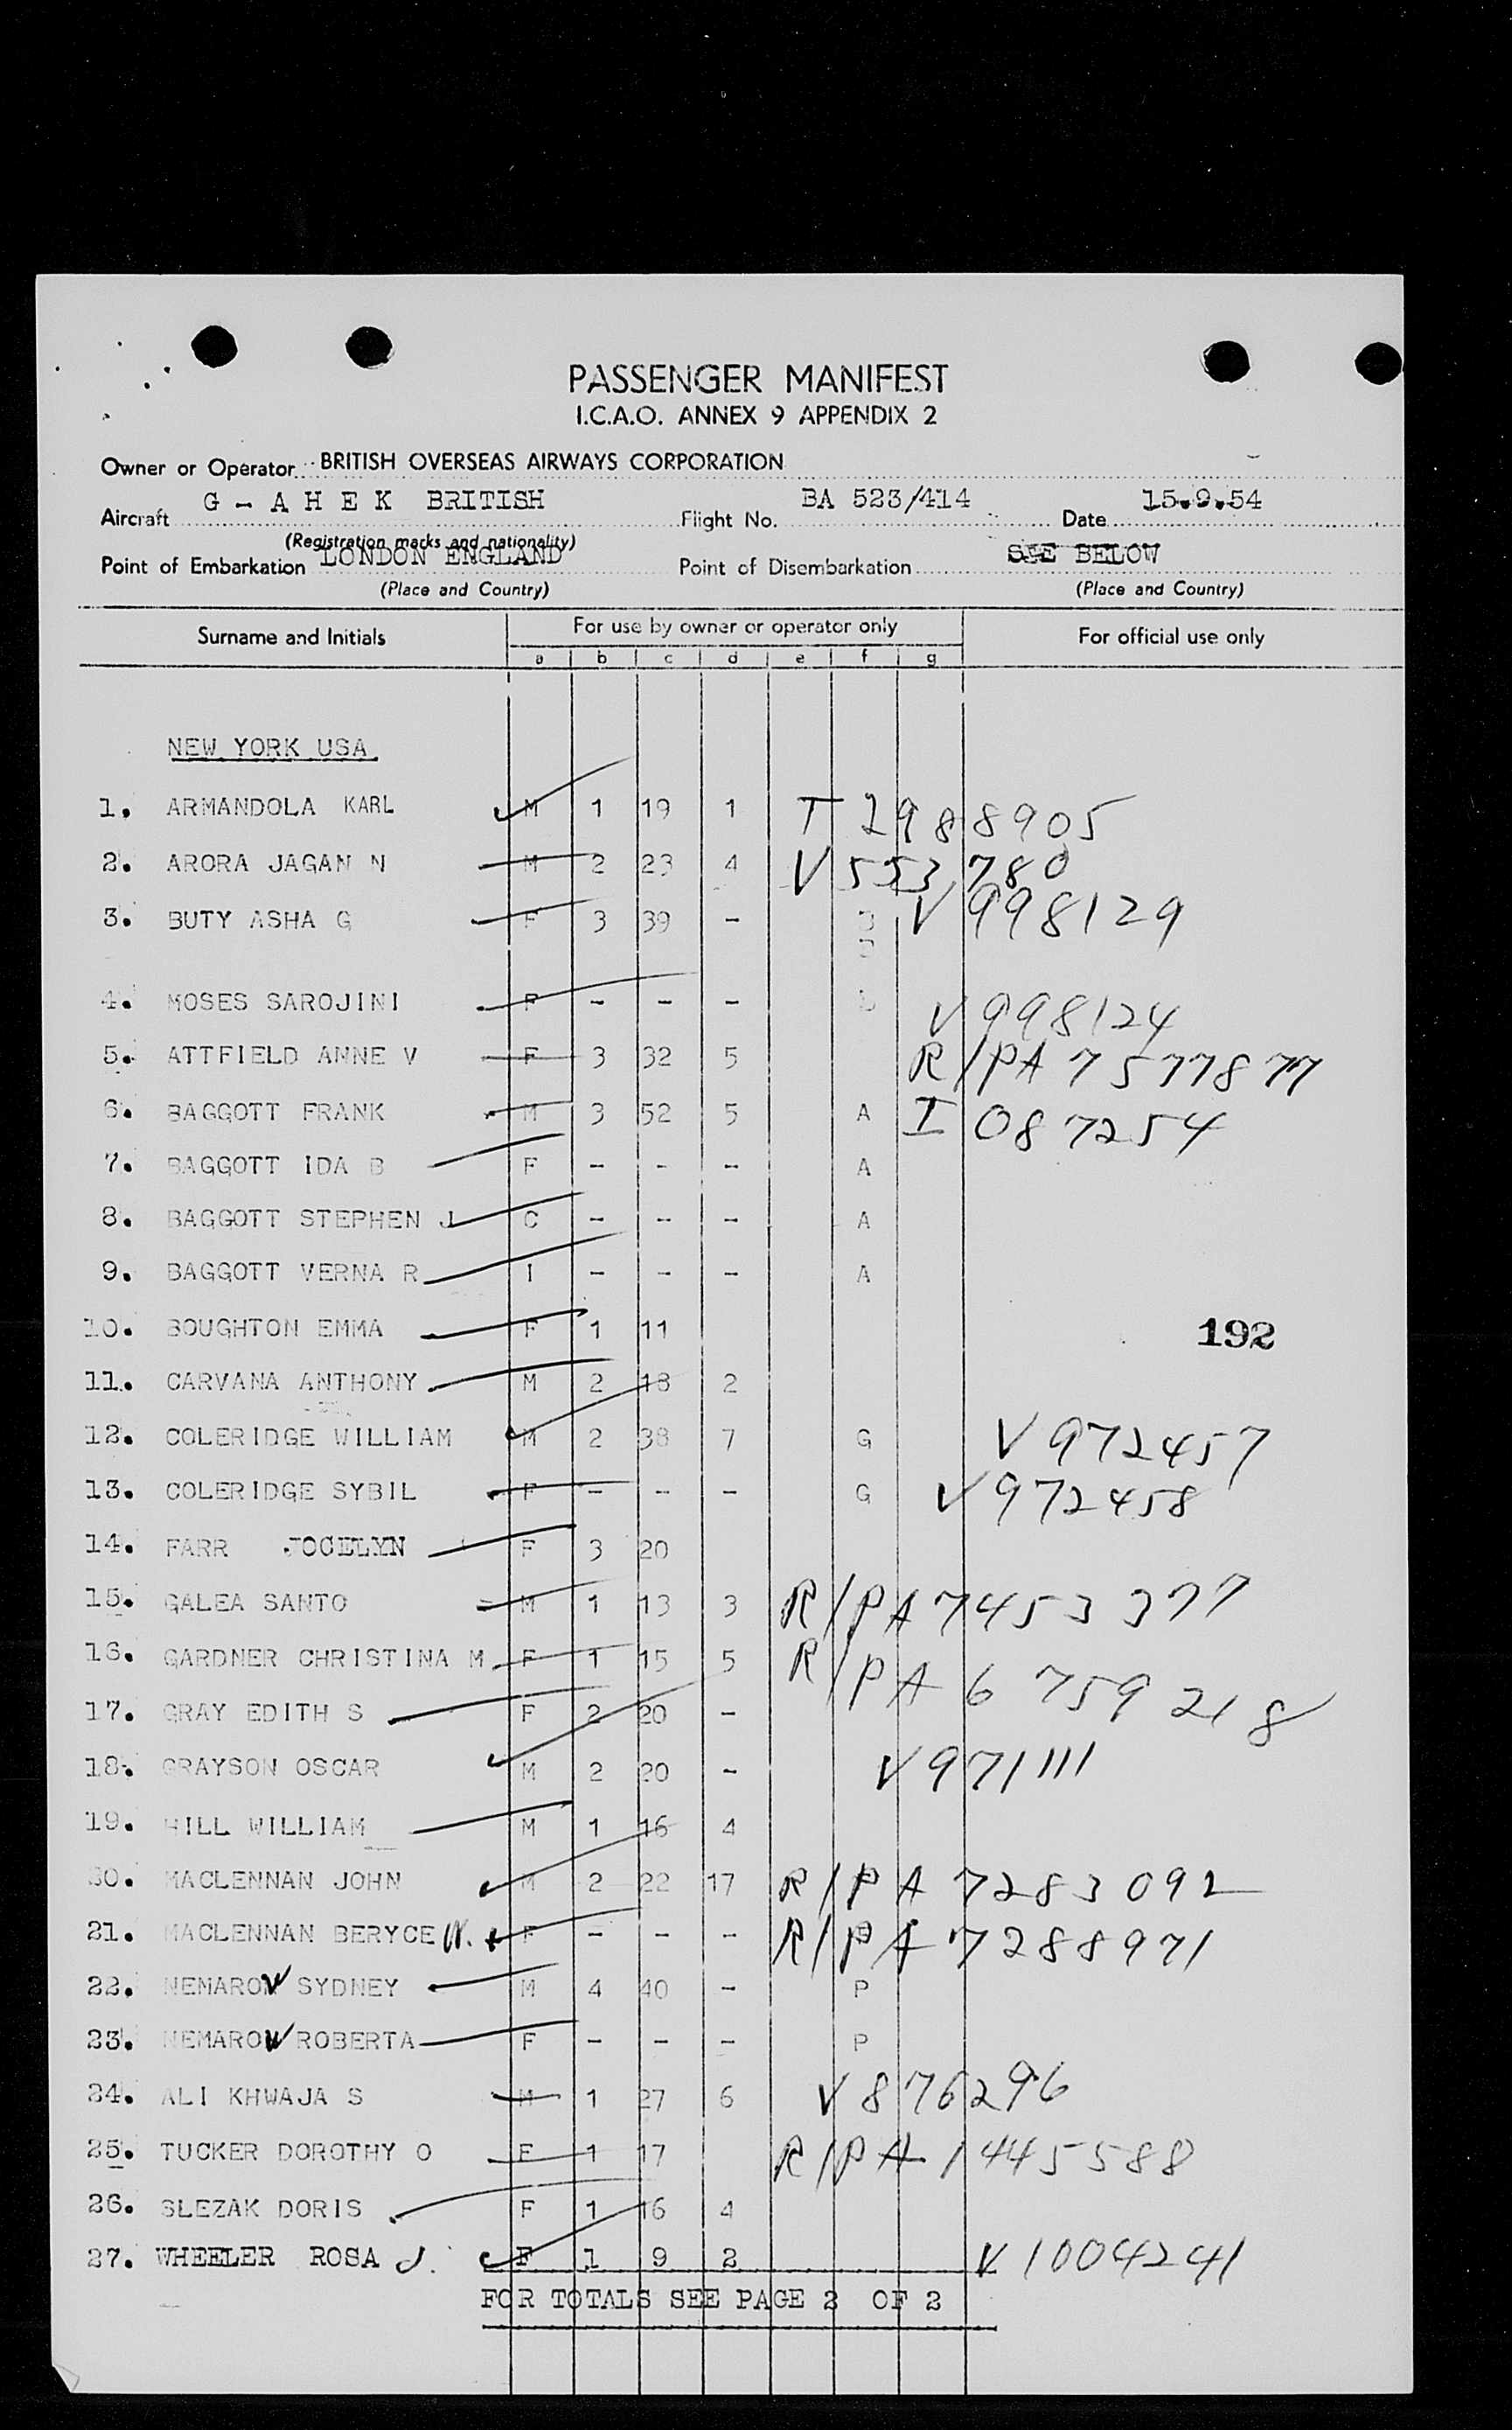 PASSENGER MANIFEST
I.C.A.O. ANNEX 9 APPENDIX 2
Owner or Operator BRITISH OVERSEAS AIRWAYS CORPORATION
Aircraft G - A H E K BRITISH Flight No. BA 523/414 Date 15.9.54
(Registration marks and nationality)
Point of Embarkation LONDON ENGLAND Point of Disembarkation SEE BELOW
(Place and Country) (Place and Country)
Surname and Initials For use by owner or operator only For official use only
a b c d e f g
NEW YORK USA
1. ARMANDOLA KARL M 1 19 1 T 2988905
2. ARORA JAGAN N M 2 23 4 V 553780
3. BUTY ASHA G F 3 39 - V 998129
4. MOSES SAROJINI F - - - V 998124
5. ATTFIELD ANNE V F 3 32 5 R/PA 7577877
6. BAGGOTT FRANK M 3 52 5 A I 087254
7. BAGGOTT IDA B F - - - A
8. BAGGOTT STEPHEN J C - - - A
9. BAGGOTT VERNA R I - - - A
10. BOUGHTON EMMA F 1 11
192
11. CARVANA ANTHONY M 2 18 2
12. COLERIDGE WILLIAM M 2 38 7 G V 972457
13. COLERIDGE SYBIL F - - - G V 972458
14. FARR JOCELYN F 3 20
15. GALEA SANTO M 1 13 3 R/PA 7453377
16. GARDNER CHRISTINA M F 1 15 5 R/PA 6759218
17. GRAY EDITH S F 2 20 -
18. GRAYSON OSCAR M 2 20 - V 971111
19. HILL WILLIAM M 1 16 4
20. MACLENNAN JOHN M 2 22 17 R/PA 7283092
21. MACLENNAN BERYCE W. F - - - R/PA 7288971
22. NEMAROW SYDNEY M 4 40 - P
23. NEMAROW ROBERTA F - - - P
24. ALI KHWAJA S M 1 27 6 V 876296
25. TUCKER DOROTHY O F 1 17 R/PA 1445588
26. SLEZAK DORIS F 1 16 4
27. WHEELER ROSA J. F 1 9 2 V 1004241
FOR TOTALS SEE PAGE 2 OF 2